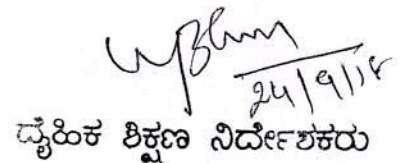 24/9/18
ದೈಹಿಕ ಶಿಕ್ಷಣ ನಿರ್ದೇಶಕರು